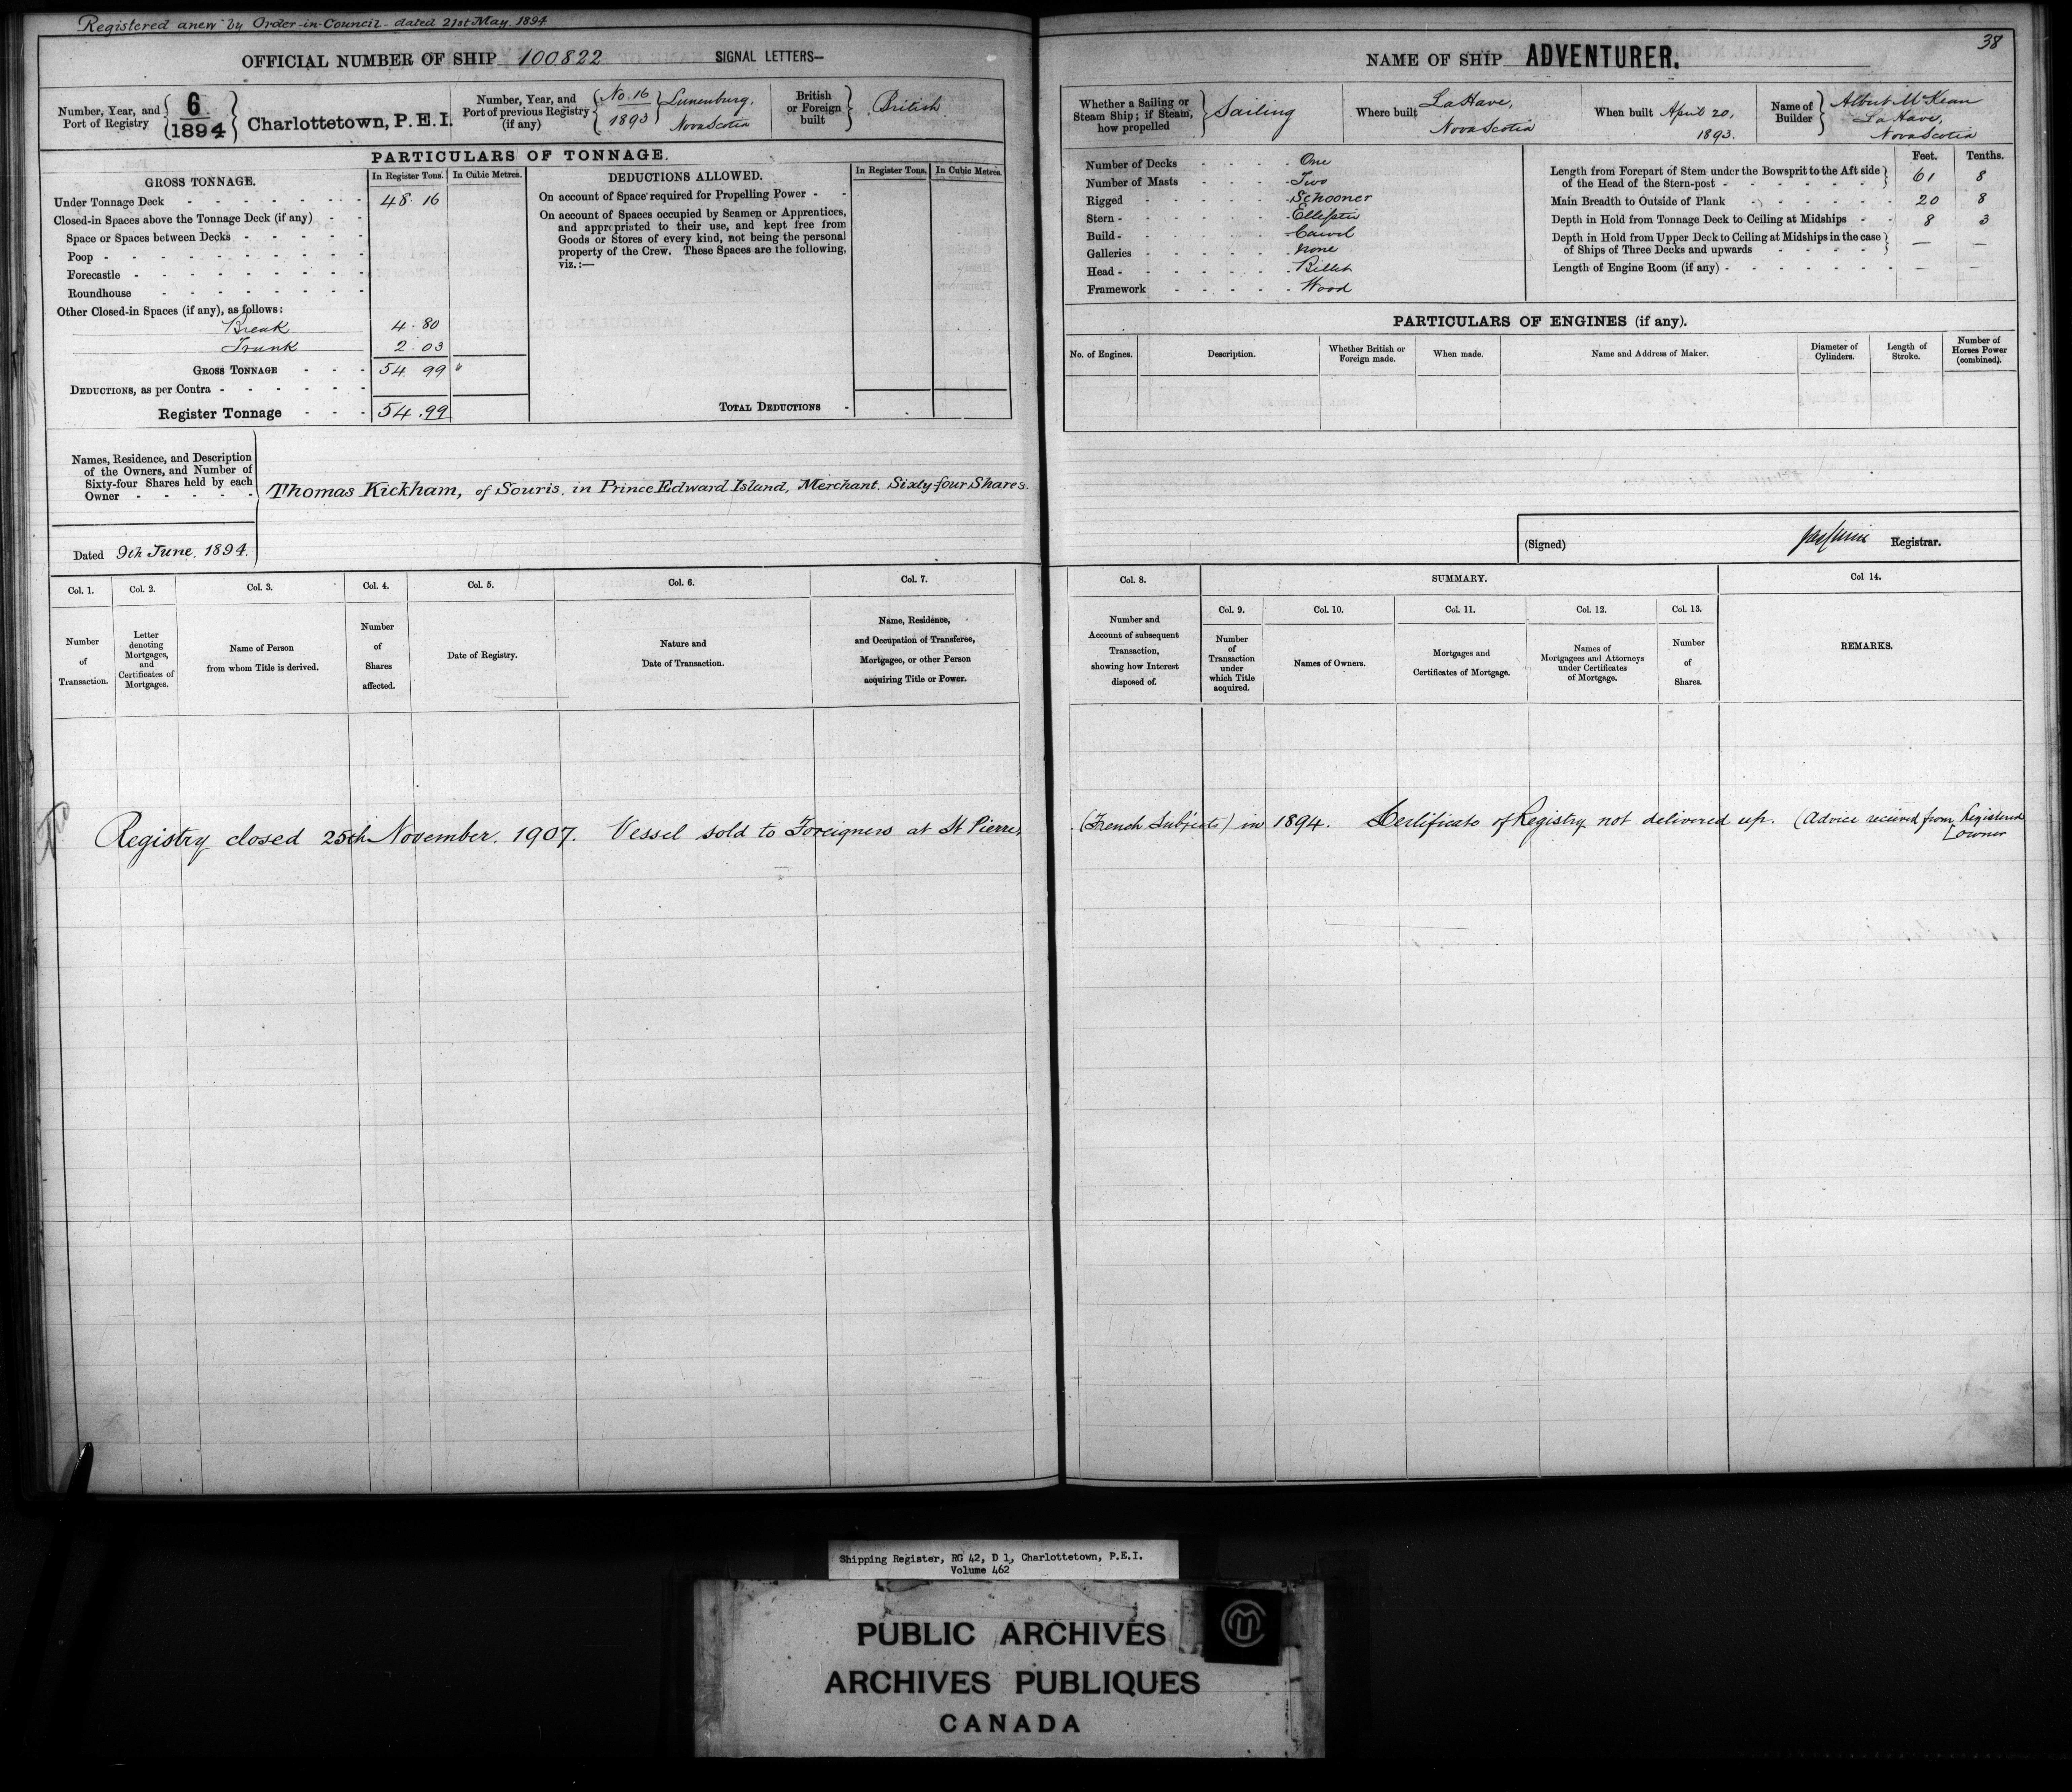 Registered anew by Order-in-Council - dated 21st May. 1894
OFFICIAL NUMBER OF SHIP 100822 SIGNAL LETTERS—
Number, Year, and Port of Registry { 6/1894 } Charlottetown, P.E.I.
Number, Year, and Port of previous Registry (if any) { No. 16 1893 } Lunenburg, Nova Scotia
British or Foreign built } British
PARTICULARS OF TONNAGE.
GROSS TONNAGE. In Register Tons. In Cubic Metres.
Under Tonnage Deck 48.16
Closed-in Spaces above the Tonnage Deck (if any)
Space or Spaces between Decks
Poop
Forecastle
Roundhouse
Other Closed-in Spaces (if any), as follows:
Break 4.80
Trunk 2.03
GROSS TONNAGE 54 99 "
DEDUCTIONS, as per Contra
Register Tonnage 54.99
DEDUCTIONS ALLOWED. In Register Tons. In Cubic Metres.
On account of Space required for Propelling Power
On account of Spaces occupied by Seamen or Apprentices,
and appropriated to their use, and kept free from
Goods or Stores of every kind, not being the personal
property of the Crew. These Spaces are the following,
viz.:—
TOTAL DEDUCTIONS
Names, Residence, and Description
of the Owners, and Number of
Sixty-four Shares held by each
Owner
Thomas Kickham, of Souris, in Prince Edward Island, Merchant. Sixty-four Shares.
Dated 9th June, 1894.
Col. 1. Number of Transaction.
Col. 2. Letter denoting Mortgages, and Certificates of Mortgages.
Col. 3. Name of Person from whom Title is derived.
Col. 4. Number of Shares affected.
Col. 5. Date of Registry.
Col. 6. Nature and Date of Transaction.
Col. 7. Name, Residence, and Occupation of Transferee, Mortgagee, or other Person acquiring Title or Power.
Registry closed 25th November. 1907. Vessel sold to Foreigners at St Pierre,
38
NAME OF SHIP ADVENTURER.
Whether a Sailing or Steam Ship; if Steam, how propelled } Sailing
Where built LaHave, Nova Scotia
When built April 20, 1893.
Name of Builder } Albert McKean La Have, Nova Scotia
Number of Decks One
Number of Masts Two
Rigged Schooner
Stern Elliptic
Build Carvel
Galleries None
Head Billet
Framework Wood
Feet. Tenths.
Length from Forepart of Stem under the Bowsprit to the Aft side
of the Head of the Stern-post 61 8
Main Breadth to Outside of Plank 20 8
Depth in Hold from Tonnage Deck to Ceiling at Midships 8 3
Depth in Hold from Upper Deck to Ceiling at Midships in the case
of Ships of Three Decks and upwards — —
Length of Engine Room (if any) — —
PARTICULARS OF ENGINES (if any).
No. of Engines. Description. Whether British or Foreign made. When made. Name and Address of Maker. Diameter of Cylinders. Length of Stroke. Number of Horses Power (combined).
(Signed) Registrar.
SUMMARY.
Col. 8. Number and Account of subsequent Transaction, showing how Interest disposed of.
Col. 9. Number of Transaction under which Title acquired.
Col. 10. Names of Owners.
Col. 11. Mortgages and Certificates of Mortgage.
Col. 12. Names of Mortgagees and Attorneys under Certificates of Mortgage.
Col. 13. Number of Shares.
Col 14. REMARKS.
(French Subjects) in 1894. Certificate of Registry not delivered up. (Advice received from Registered
[owner
Shipping Register, RG 42, D 1, Charlottetown, P.E.I.
Volume 462
PUBLIC ARCHIVES
ARCHIVES PUBLIQUES
CANADA